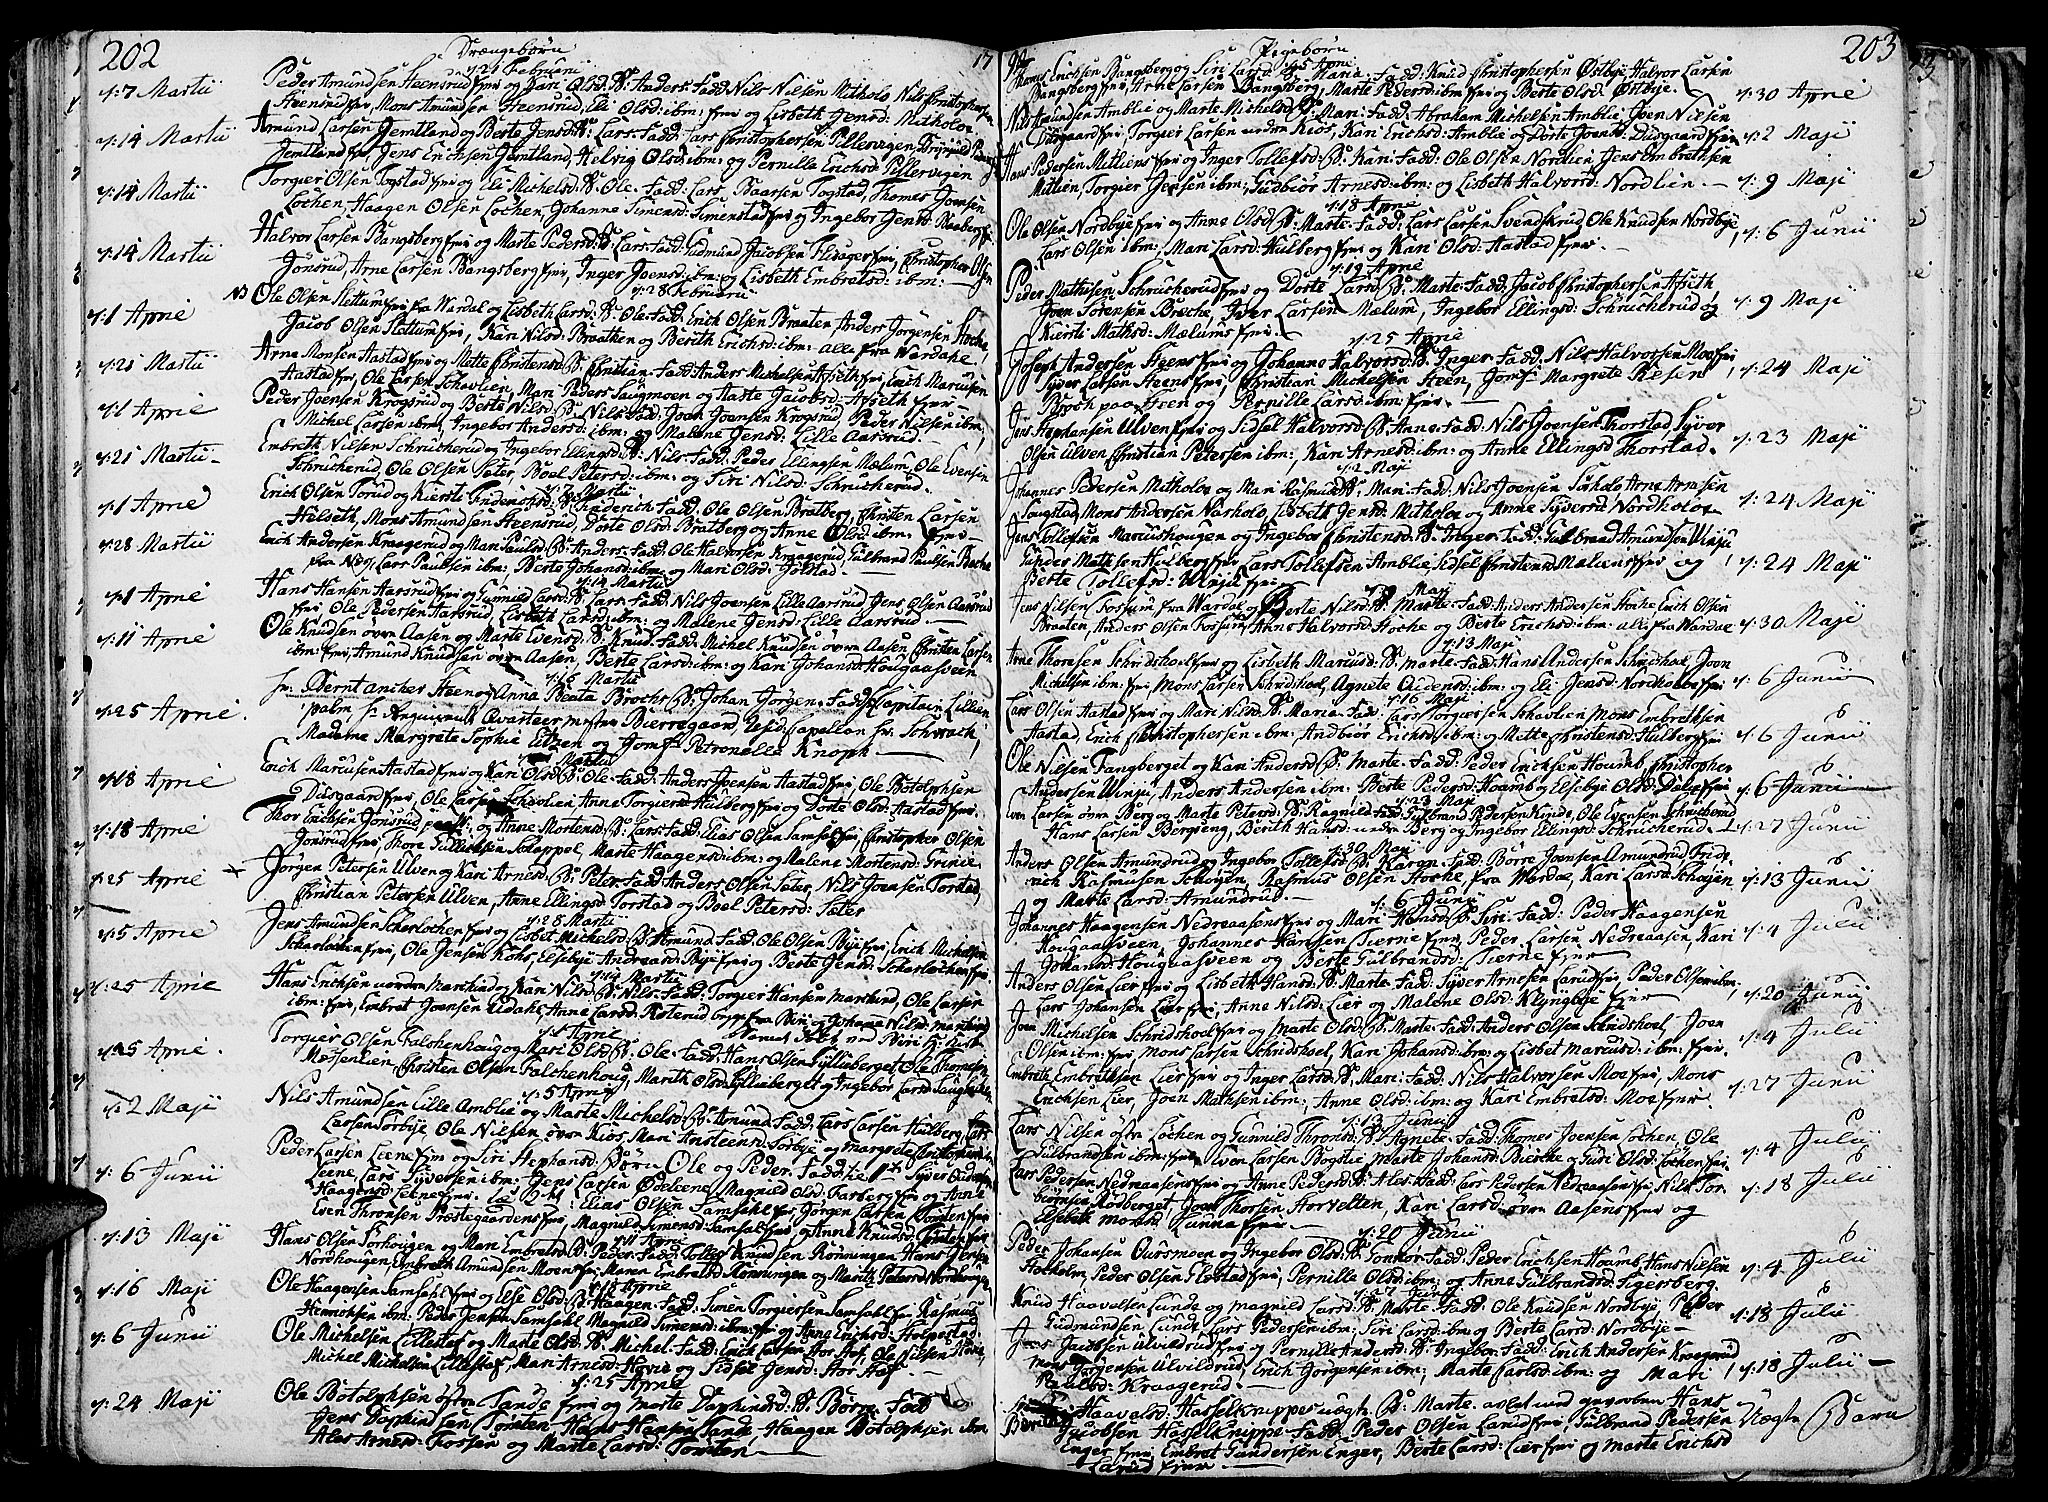 202
Drængebørn
17
d: 21 Februarii
d: 7 Martii
Peder Amundsen Steensrud fmi og Kari Olsd: B: Anders. Fadd: Nils Nilsen Mitholo, Nils Christophersen
Steensrud fmi, Mons Amundsen Steensrud, Eli Olsd: ibm: fmi og Lisbeth Jensd: Mitholoe
d: 14 Martii
Amund Larsen Jemtland og Berte Jensd: B: Lars. Fadd: Lars Christophersen Pellervigen
Jemtland fmi, Jens Erichsen Jemtland, Helvig Olsd: ibm: og Pernille Erichsd: Pillervigen
d: 14 Martii
Torgier Olsen Togstad fmi og Eli Michelsd: B: Ole. Fadd: Lars Baarsen Togstad, Thomes Joensen
Løchen, Haagen Olsen Løchen, Johanne Simensd: Simenstad fmi og Ingebor Jensd: Raaberg
d: 14 Martii
Halvor Larsen Bangsberg fmi og Marte Pedersd: B: Lars. Fadd: Gudmund Jacobsen Flisager fmi, Christopher Olsen
Jønsrud, Arne Larsen Bangsberg fmi, Inger Joensd: ibm: og Lisbeth Embretsd: ibm:
d: 28 Februarii
d: 1 April
NB Ole Olsen Slettum fmi fra Wardal og Lisbeth Larsd: B: Ole. Fadd: Erich Olsen Braaten Anders Jørgensen Hocke,
Jacob Olsen Slettum fmi, Kari Nilsd: Braathen og Berith Erichsd: ibm: alle fra Wardahl
d: 21 Martii
Arne Monsen Aastad fmi og Mette Christensd: B: Christian. Fadd: Anders Michelsen Afseth fmi, Erich Marcusen
Aastad fmi, Ole Larsen Schavlien, Mari Peders Saugmoen og Aaste Jacobsd: Afseth fmi
d: 1 April
Peder Joensen Krogsrud og Berte Nilsd: B: Nils. Fad: Joen Joensen Krogsrud Peder Nilsen ibm,
Michel Larsen ibm, Ingebor Andersd: ibm: og Malene Jensd: Lille Aassrud
d: 21 Martii
Embreth Nilsen Schrucherud og Ingebor Ellingsd: B: Nils. Fadd: Peder Ellingsen Mælum, Ole Evensen
Schrucherud, Ole Olsen Sæter, Boel Petersd: ibm: og Siri Nilsd: Schrucherud.
d: 1 April
Erich Olsen Torud og Kierste Frederichsd: B: Friderich Fadd: Ole Olsen Bratberg, Christen Larsen
Hilseth, Mons Amundsen Steensrud, Dorte Olsd: Bratberg og Anne Olsd: ibm: fmi
d: 28 Martii
Erich Andersen Kraagerud og Mari Paulsd: B: Anders. Fadd: Ole Halvorsen Kraagerud, Gulbrand Paulsen Backe
fra Næs, Lars Paulsen ibm, Berte Johansd: ibm: og Mari Olsd: Jølstad
d: 14 Martii
d: 1 April
Hans Hansen Aarsrud fmi og Gunnild Larsd: B: Lars. Fadd: Nils Joensen Lille Aarsrud, Jens Olsen Aasrud
fmi Ole Pedersen Aarsrud, Lisbeth Larsd: ibm: og Malene Jensd: Lille Aarsrud
d: 11 April
Ole Knudsen øvre Aasen og Marte Evensd: B: Knud. Fadd: Michel Knudsen øvre Aasen Christen Larsen
ibm: fmi, Amund Knudsen øvre Aasen, Berte Larsd: ibm: og Kari Johansd: Hougaasveen
d: 16 Martii
d: 25 April.
hr. Bernt ancher Steen og Anna Beata Brochs B: Johan Jørgen. Fadd: Capitain Lillien
palm hr Regiments Qvarteermester Bierregaard, Resd. Capellan hr. Schrach,
Madame Margrete Sophie Eitzen og Jomf: Petronelle Knoph
d: 18 April
Erich Marcusen Aastad fmi og Kari Olsd: B: Ole. Fadd: Anders Joensen Aastad fmi, Ole Botolphsen
Diisgaard fmi, Ole Larsen Schavlien Anne Torgiers Hulberg fmi og Dorte Olsd: Aastad fmi
d: 18 April
Thor Erichsen Jønsrud og Anne Mortensd: B: Lars. Fadd: Elias Olsen Samsahl fmi, Christopher Olsen
Jønsrud fmi, Thore Gulliksen Schappel, Marte Haagensd: ibm: og Malene Mortensd: Grini
d: 25 April
Jørgen Petersen Ulven og Kari Arnesd: B: Peter. Fadd: Anders Olsen Sæter, Nils Joensen Torstad,
Christian Petersen Ulven, Anne Ellingsd: Torstad og Boel Petersd: Sæter
d: 28 Martii
d: 5 April
Jens Amundsen Scharløchen fmi og Lisbet Michelsd: B: Amund. Fadd: Ole Olsen Bye fmi, Erich Michelsen
Scharløchen fmi, Ole Jensen Kohs, Elsebye Andreasd: Bye fmi og Berte Jensd: Scharløchen fmi
d: 14 Martii
d: 25 April
Hans Erichsen nordre Marchind og Kari Nilsd: B: Nils. Fadd: Torgier Hansen Marchind, Ole Larsen
ibm: fmi, Embret Joensen Udahl, Anne Larsd: Roterud bygd fra Birie og Johanne Nilsd: marchind
d: 1 April
d: 25 April.
Torgier Olsen Falchenhoug og Mari Olsd: B: Ole. Fadd: Hans Olsen Gyllieberget Ole Thomesen
Messenlien, Christen Olsen Falchenhoug, Marith Olsd: Gyllieberget og Ingebor Larsd:
d: 5 April
d: 2 Maji
Nils Amundsen Lille Amblie og Marte Michelsd: B: Amund. Fadd: Lars Larsen Hulberg, Lars
Larsen Torbye, Ole Nilsen øvre Kios, Mari Ansteensd: Torbye og Margrete
d: 6 Junii
Peder Larsen Leene fmi og Siri Stephansd: Børn Ole og Peder. Fadd: til 1st: Syver
Leene, Lars Syversen ibm: Jens Larsen Ødelien, Magnild Olsd: Farberg fmi og Anne
Haagensd: Leene fmi. til 2det: Elias Olsen Samsahl fmi, Jørgen Larsen Torsten fmi
Even Thronsen Prestegaardens fmi, Magnild Simensd: Samsahl fmi og Anne Knudsd: Torsten fmi
d: 11 April
d: 13 Maji
Hans Olsen Forhougen og Mari Embretsd: B: Peder. Fadd: Tollef Knudsen Rønningen, Hans Jensen
Nordhougen, Embreth Amundsen Moen fmi, Maren Embretsd: Rønningen og Marith Petersd:
d: 18 April
d: 16 Maji
Ole Haagensen Samsahl fmi og Else Olsd: B: Haagen. Fadd: Simen Torgiersen Samsahl fmi Rasmus
Hennchsen ibm: Peder Jensen Samsahl Magnild Simensd: ibm: fmi og Anne Erichsd: Stolpestad
d: 6 Junii
Ole Michelsen Lillestaf og Marte Olsd: B: Michel. Fadd: Erich Larsen Stor Staf, Ole Nilsen Hovie,
Michel Michelsen Lillestaf, Mari Arnesd: Hovie og Sidsel Jensd: Stor Staf
d: 25 April
d: 24 Maji
Ole Botolphsen østre Tande fmi og Marte Daphinsd: B: Børre. Fadd
Jens Daphinsen Torsten, Hans Hansen Tande Haagen Botolphsen ibm
Ales Arnesd: Fossen og Marte Larsd: Torsten
203
Pigebørn
d: 5 April
Thomes Erichsen Bangsberg og Siri Larsd: B: Maria. Fadd: Knud Christophersen Østbye, Halvor Larsen
Bangsberg fmi, Arne Larsen Bangsberg, Marte Pedersd: ibm: fmi og Berte Olsd: Østbye.
d: 30 April
Nils Amundsen Amblie og Marte Michelsd: B: Mari. Fadd: Abraham Michelsen Amblie, Joen Nilsen
Diisgaard fmi, Torgier Larsen nedre Kios, Kari Erichsd: Amblie og Dorte Joensd: Diisgaard fmi
d: 2 Maji
Hans Pedersen Mitliens fmi og Inger Tollefsd: B: Kari. Fadd: Ole Olsen Nordlien Jens Embrethsen
Mitlien, Torgier Jensen ibm, Gudbiør Arnesd: ibm: og Lisbeth Halvorsd: Nordlien.
d: 9 Maji
d: 18 April
Ole Olsen Nordbye fmi og Anne Olsd: B: Marte. Fadd: Lars Larsen Svendskrud, Ole Knudsen Nordbye
Lars Olsen ibm: Mari Larsd: Hulberg fmi og Kari Olsd: Aastad fmi.
d: 6 Junii
d: 19 April
Peder Mathisen Schrucherud fmi og Dorte Larsd: B: Marte. Fadd: Jacob Christophersen Afseth
Joen Sørensen Breche, Iver Larsen Mælum, Ingebor Ellingsd: Schrucherud og
Kierste Mathsd: Mælums fmi.
d: 9 Maji
d: 25 April
Joseph Andersen Steens fmi og Johanne Halvorsd: B: Inger. Fadd: Nils Halvorsen Moe fmi
Syver Larsen Steens fmi, Christian Michelsen Steen, Jomf: Margrete Resen
Broch paa Steen og Pernille Larsd: ibm: fmi.
d: 24 Maji
Jens Stephansen Ulven fmi og Sidsel Halvorsd: B: Anne. Fadd: Nils Joensen Thorstad, Syver
Olsen Ulven Christian Petersen ibm, Kari Arnesd: ibm: og Anne Ellingsd Thorstad.
d: 23 Maji
d: 2 Maji
Johannes Pedersen Mitholoe og Mari Rasmusd: B: Mari. Fadd: Nils Joensen Sørholo, Arne Arnesen
Saugstad, Mons Andersen Narholo, Lisbeth Jensd: Mitholoe og Anne Syversd: Nordholoe
d: 24 Maji
Jens Tollefsen Marcushougen og Ingebor Christensd: B: Inger. Fadd: Gulbrand Amundsen Winju
Gunder Mathisen Hulberg fmi Lars Tollefsen Amblie Sidsel Christensd: Mæliens fmi og
Berte Tollefsd: Winju fmi
d: 24 Maji
Jens Nilsen Fossum fra Wardal og Berte Nilsd: B: Marte. Fadd: Anders Andersen Hocke Erich Olsen
Braaten, Anders Olsen Fossum Anne Halvorsd: Hocke og Berte Erichsd: ibm: alle fra Wardal
d: 30 Maji
d: 13 Maji
Arne Thomesen Schridshoel fmi og Lisbeth Marcusd: B: Marte. Fadd: Hans Andersen Schridshoel, Joen
Michelsen ibm: fmi Mons Larsen Schridshoel, Agnete Audensd: ibm: og Eli Jensd: Nordkolbe fmi
d: 6 Junii
d: 16 Maji
Lars Olsen Aastad fmi og Mari Nilsd: B: Maria. Fadd: Lars Torgiersen Schavlien Mons Embrethsen
Aastad, Erich Christophersen ibm, Andbiør Erichsd: ibm: og Mette Christensd: Hulberg fmi
d: 6 Junii
Ole Nilsen Fangberget og Kari Andersd: B: Marte. Fadd: Peder Erichsen Houmb, Christopher
Andersen Winju, Anders Andersen ibm: Berte Pedersd: Houmb og Elsebye Olsd: Dale fmi
d: 6 Junii
d: 23 Maji
Even Larsen øvre Berg og Marte Petersd: B: Ragnild. Fadd: Gulbrand Pedersen Kinde, Ole Evensen Schrucherud
Hans Larsen Bergseng, Berith Hansd: nedre Berg og Ingebor Ellingsd: Schrucherud.
d: 27 Junii
d: 30 Maji
Anders Olsen Amundrud og Ingebor Tollefsd: B: Karen. Fadd: Børre Joensen Amundrud Fridr
rich Rasmusen Schøyen, Rasmus Olsen Hocke fra Wardal, Kari Larsd: Schøyen
og Marte Larsd: Amundrud.
d: 13 Junii
d: 6 Junii
Johannes Haagensen Nedreaasens fmi og Mari Hansd: B: Siri. Fadd: Peder Haagensen
Hougaasveen, Johannes Hansen Tierne fmi, Peder Larsen Nedreaasen, Kari
Johansd: Hougaasveen og Berte Gulbrandsd: Tierne fmi
d: 4 Julii
Anders Olsen Lier fmi og Lisbeth Hansd: B: Marte. Fadd: Syver Arnesen Larud fmi, Peder Olsen ibm:
Lars Johansen Lier fmi, Anne Nilsd: Lier og Malene Olsd: Klyngbye fmi
d: 20 Junii
Joen Michelsen Schridshoel fmi og Marte Olsd: B: Marte. Fadd: Anders Olsen Schridshoel, Joen
Olsen ibm: fmi, Mons Larsen Schridshoel, Kari Johansd: ibm: og Lisbet Marcusd: ibm: fmi.
d: 4 Julii
Embreth Embrethsen Lier fmi og Inger Larsd: B: Mari. Fadd: Nils Halvorsen Moe fmi, Mons
Erichsen Lier, Joen Mathsen ibm: Anne Olsd: ibm: og Kari Embretsd: Moe fmi.
d: 27 Junii
d: 13 Junii
Lars Nilsen østre Løchen og Gunnild Thronsd: B: Agnete. Fadd: Thomes Joensen Løchen, Ole
Gulbrandsen ibm: fmi, Iver Larsen Bogstie, Marte Johansd: Bierche og Guri Olsd: Løchen fmi.
d: 4 Julii
Lars Pedersen Nedreaasens fmi og Anne Pedersd: B: Ales. Fadd: Lars Pedersen Nedreaasens fmi, Nils Tor-
biørnsen Rødberget, Joen Thorsen Horvelten, Kari Larsd: øvre Aasens fmi og
Elsebeth Monsd: Sunna fmi
d: 18 Julii
d: 20 Junii
Peder Johansen Oursmoen og Ingebor Olsd: B: Fadd: Peder Erichsen Houmb, Hans Nilsen
Stocholm, Peder Olsen Glæstad fmi, Pernille Olsd: ibm: og Anne Gulbrandsd: Sigersberg
d: 4 Julii
d: 27 Junii
Knud Haavelsen Lunde og Magnild Larsd: B: Marte. Fadd: Ole Knudsen Nordbye, Peder
Gudmundsen Lunde Lars Pedersen ibm: Siri Larsd: ibm: og Berte Larsd: Nordbye
d: 18 Julii
Jens Jacobsen Ulvildrud fmi og Pernille Andersd: B: Ingebor. Fadd: Erich Andersen Kraagerud
Mons Jørgensen Ulvildrud, Erich Jørgensen ibm: Marte Carlsd: ibm: og Mari
Paulsd: Kraagerud.
d: 18 Julii
Haavalsd: Hasselknuppe uægte B: Marte. avlet med ungkarl Hans
Jacobsen Hasselknuppe. Fadd: Peder Olsen Larud fmi, Gulbrand Pedersen
Enger fmi, Embret Gundersen Enger, Berte Larsd: Lier fmi og Marte Erichsd
Larud fmi
Uægte Barn